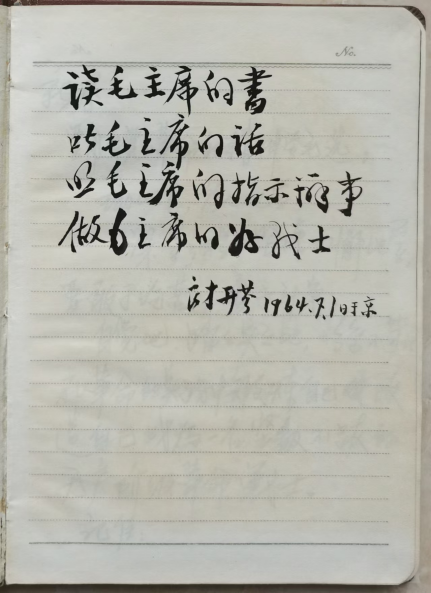 No.
读毛主席的書
听毛主席的话
照毛主席的指示辦事
做毛主席的好战士
1964.7.1日于京